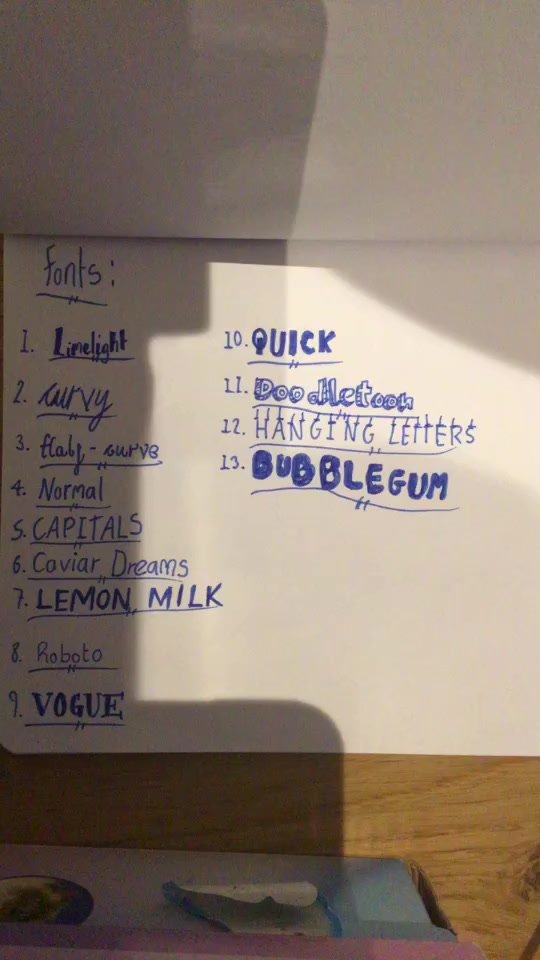 fonts:
1. Limelight
2. curvy
3. flaby-curve
4. Normal
5. CAPITALS
6. Caviar Dreams
7. LEMON MILK
8. Roboto
9. VOGUE
10. QUICK
11. Doodletoon
12. HANGING LETTERS
13. BUBBLEGUM